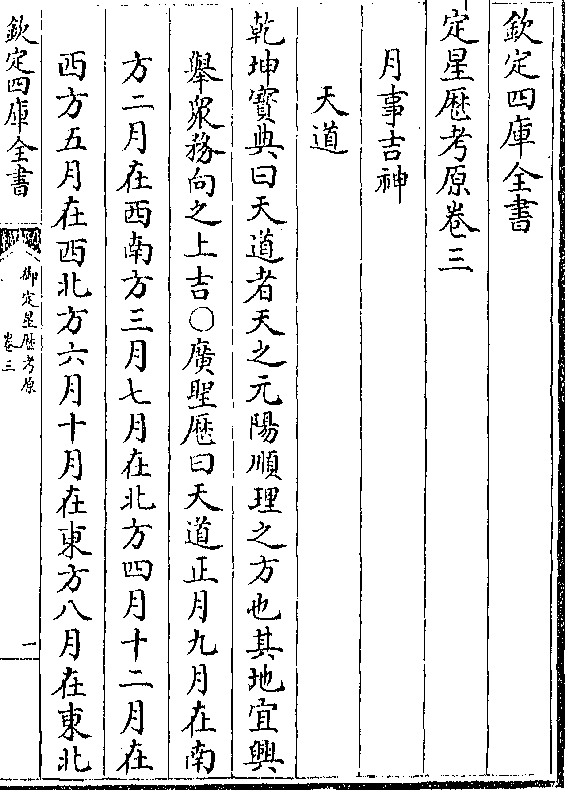 欽定四庫全書
定星歷考原卷三
月事吉神
天道
乾坤寶典曰天道者天之元陽順理之方也其地宜興
舉衆務向之上吉○廣聖歷曰天道正月九月在南
方二月在西南方三月七月在北方四月十二月在
西方五月在西北方六月十月在東方八月在東北
欽定四庫全書
御定星歷考原
卷三
一